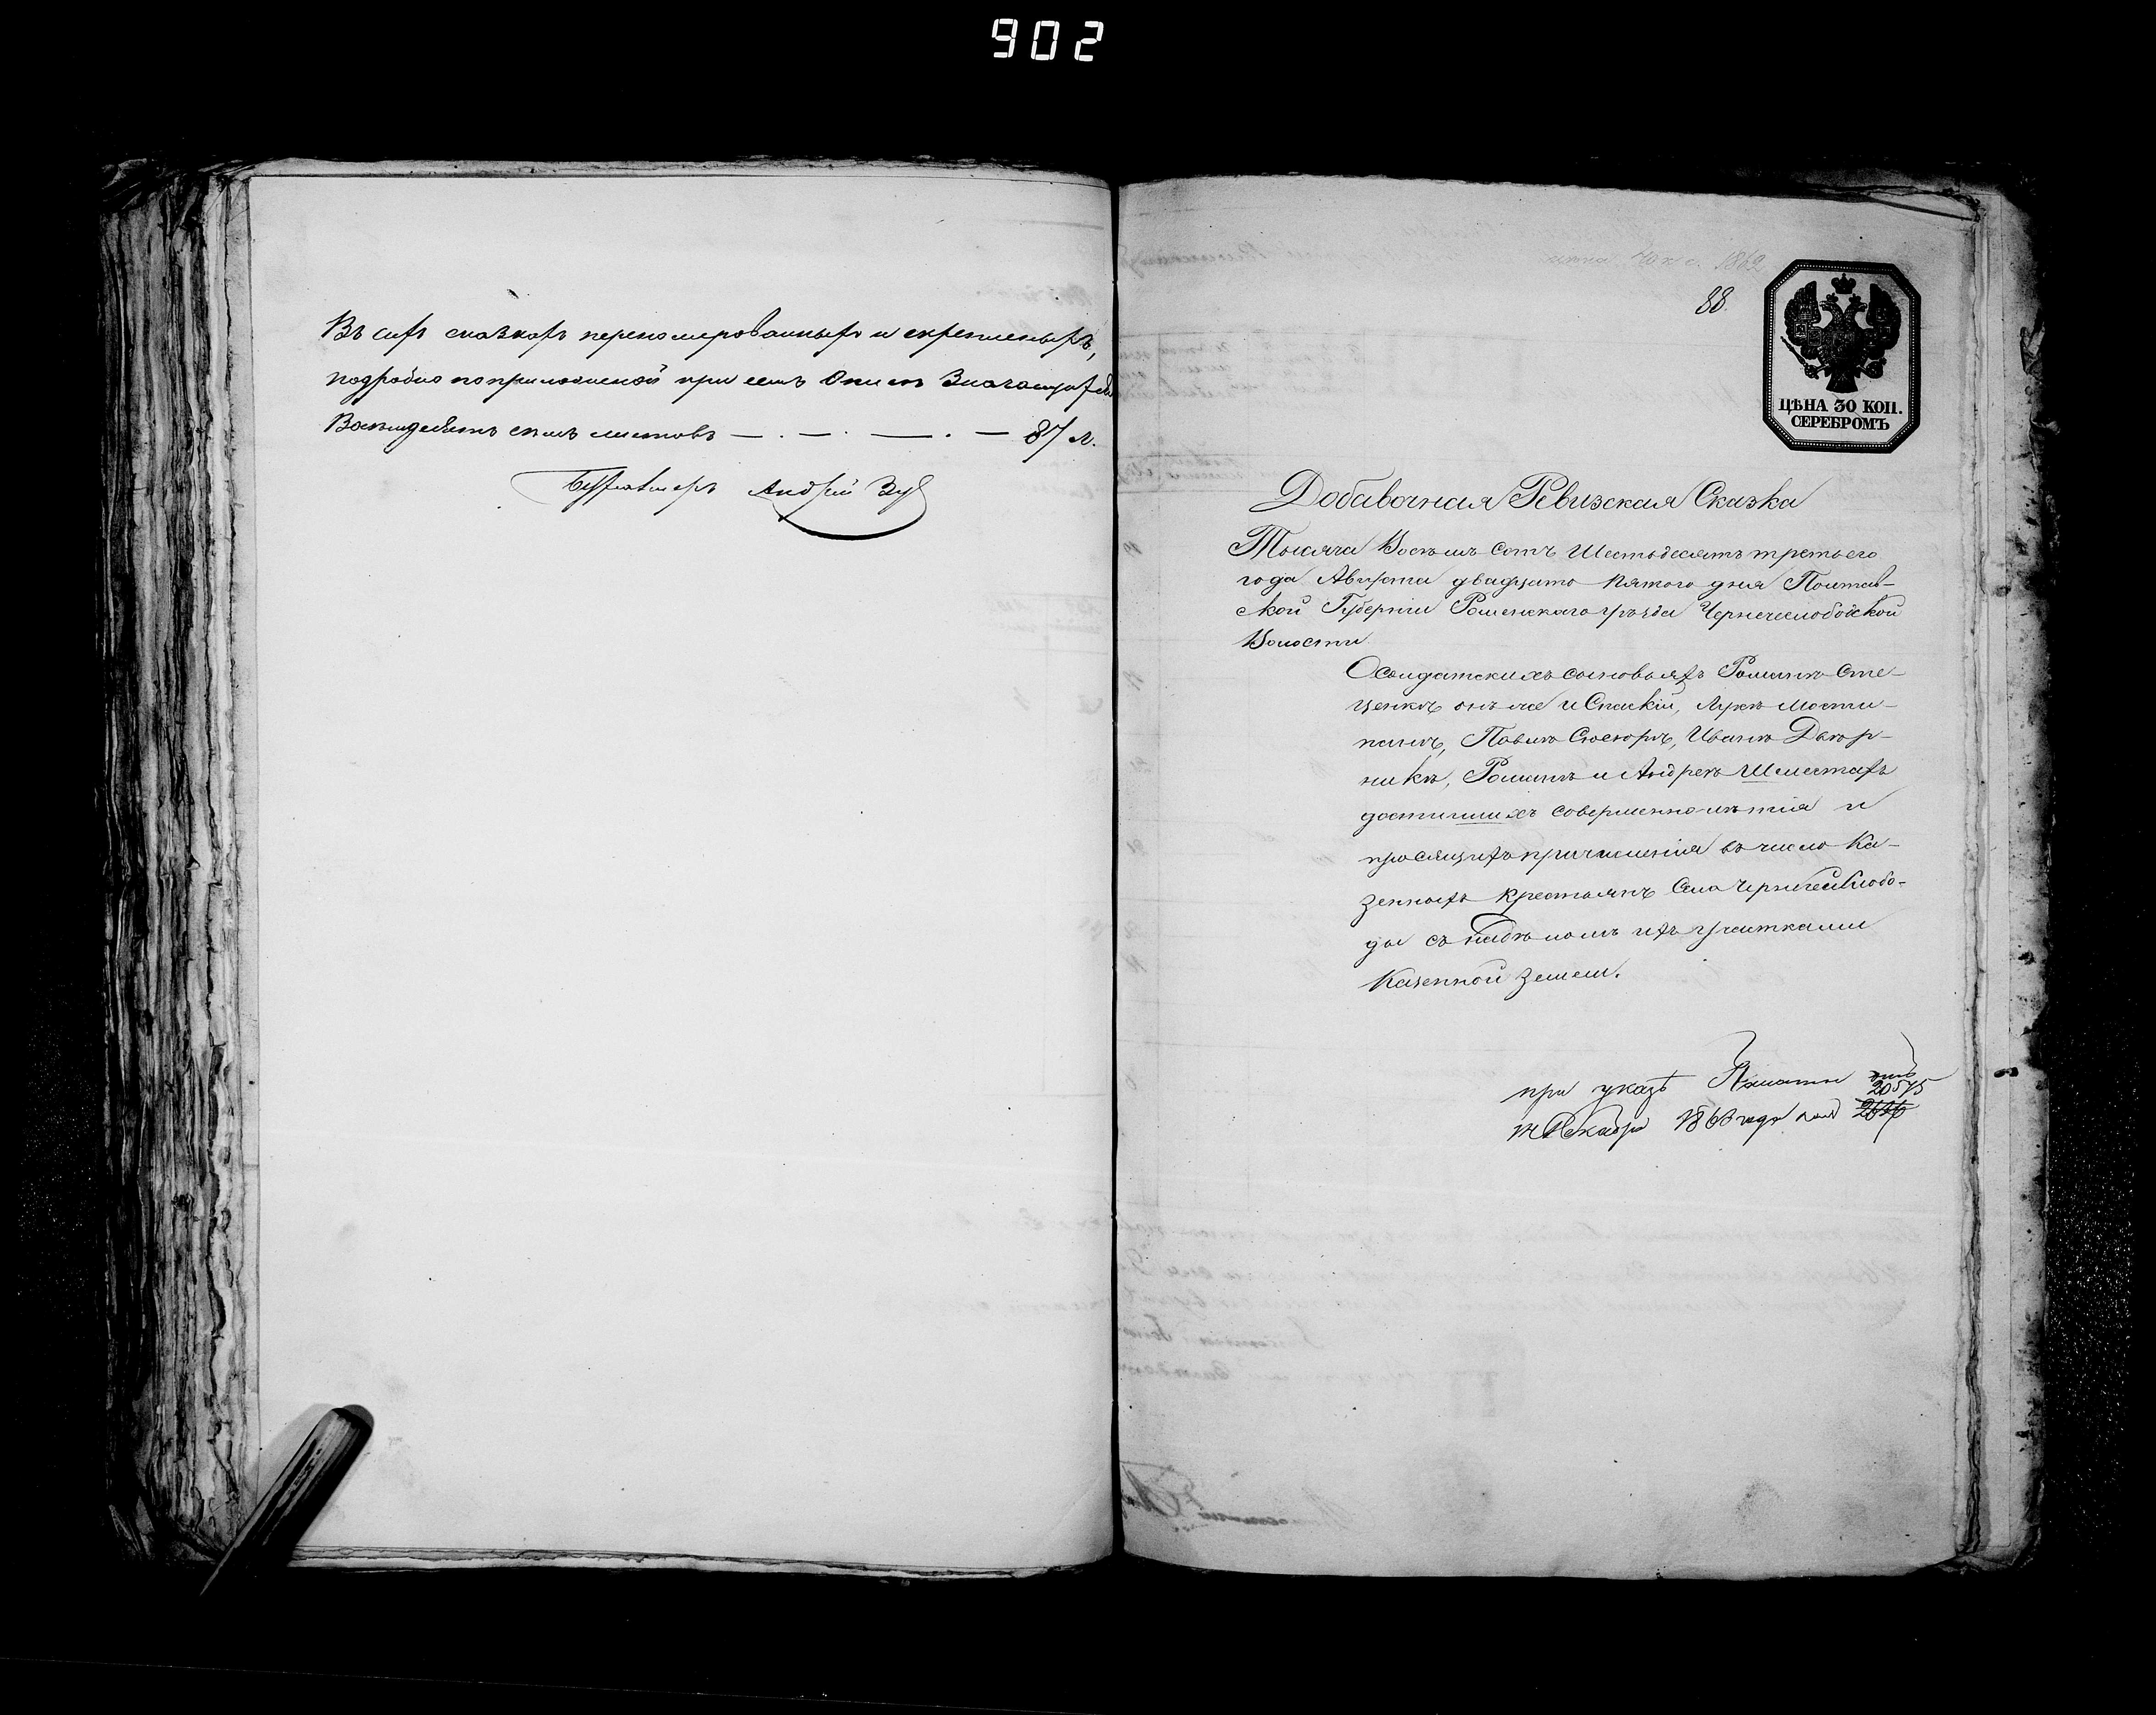 902
Въ сихъ сказкахъ переномерованныхъ и скрепленыхъ,
подробно по приложеной при семъ Описи Значащихся
Восемдесятъ семъ листовъ — . — . — . — 87 л.
Бухгалтеръ Андрей
1862
88.
ЦѢНА 30 КОП.
СЕРЕБРОМЪ
Добавочная Ревизская Сказка
Тысяча Восемь сотъ Шестьдесятъ третьего
года Августа двадцать пятого дня Полтав-
ской Губерніи Роменскаго уѣзда Чернечеслободской
Волости
О солдатскихъ сыновьяхъ Романѣ Сте-
ценкѣ онъ же и Спаскій, Лукѣ
Павлѣ Слюсарѣ, Иванѣ Двор-
никѣ, Романѣ и Андреѣ Шмиготахъ
достигшихъ совершеннолѣтія и
просящихъ причисленія въ число Ка-
зенныхъ крестьянъ Села Чернечей Слобо-
ды съ надѣломъ ихъ участками
Казенной земли.
при указѣ Палаты отъ
Декабря 1863 года подъ 20575